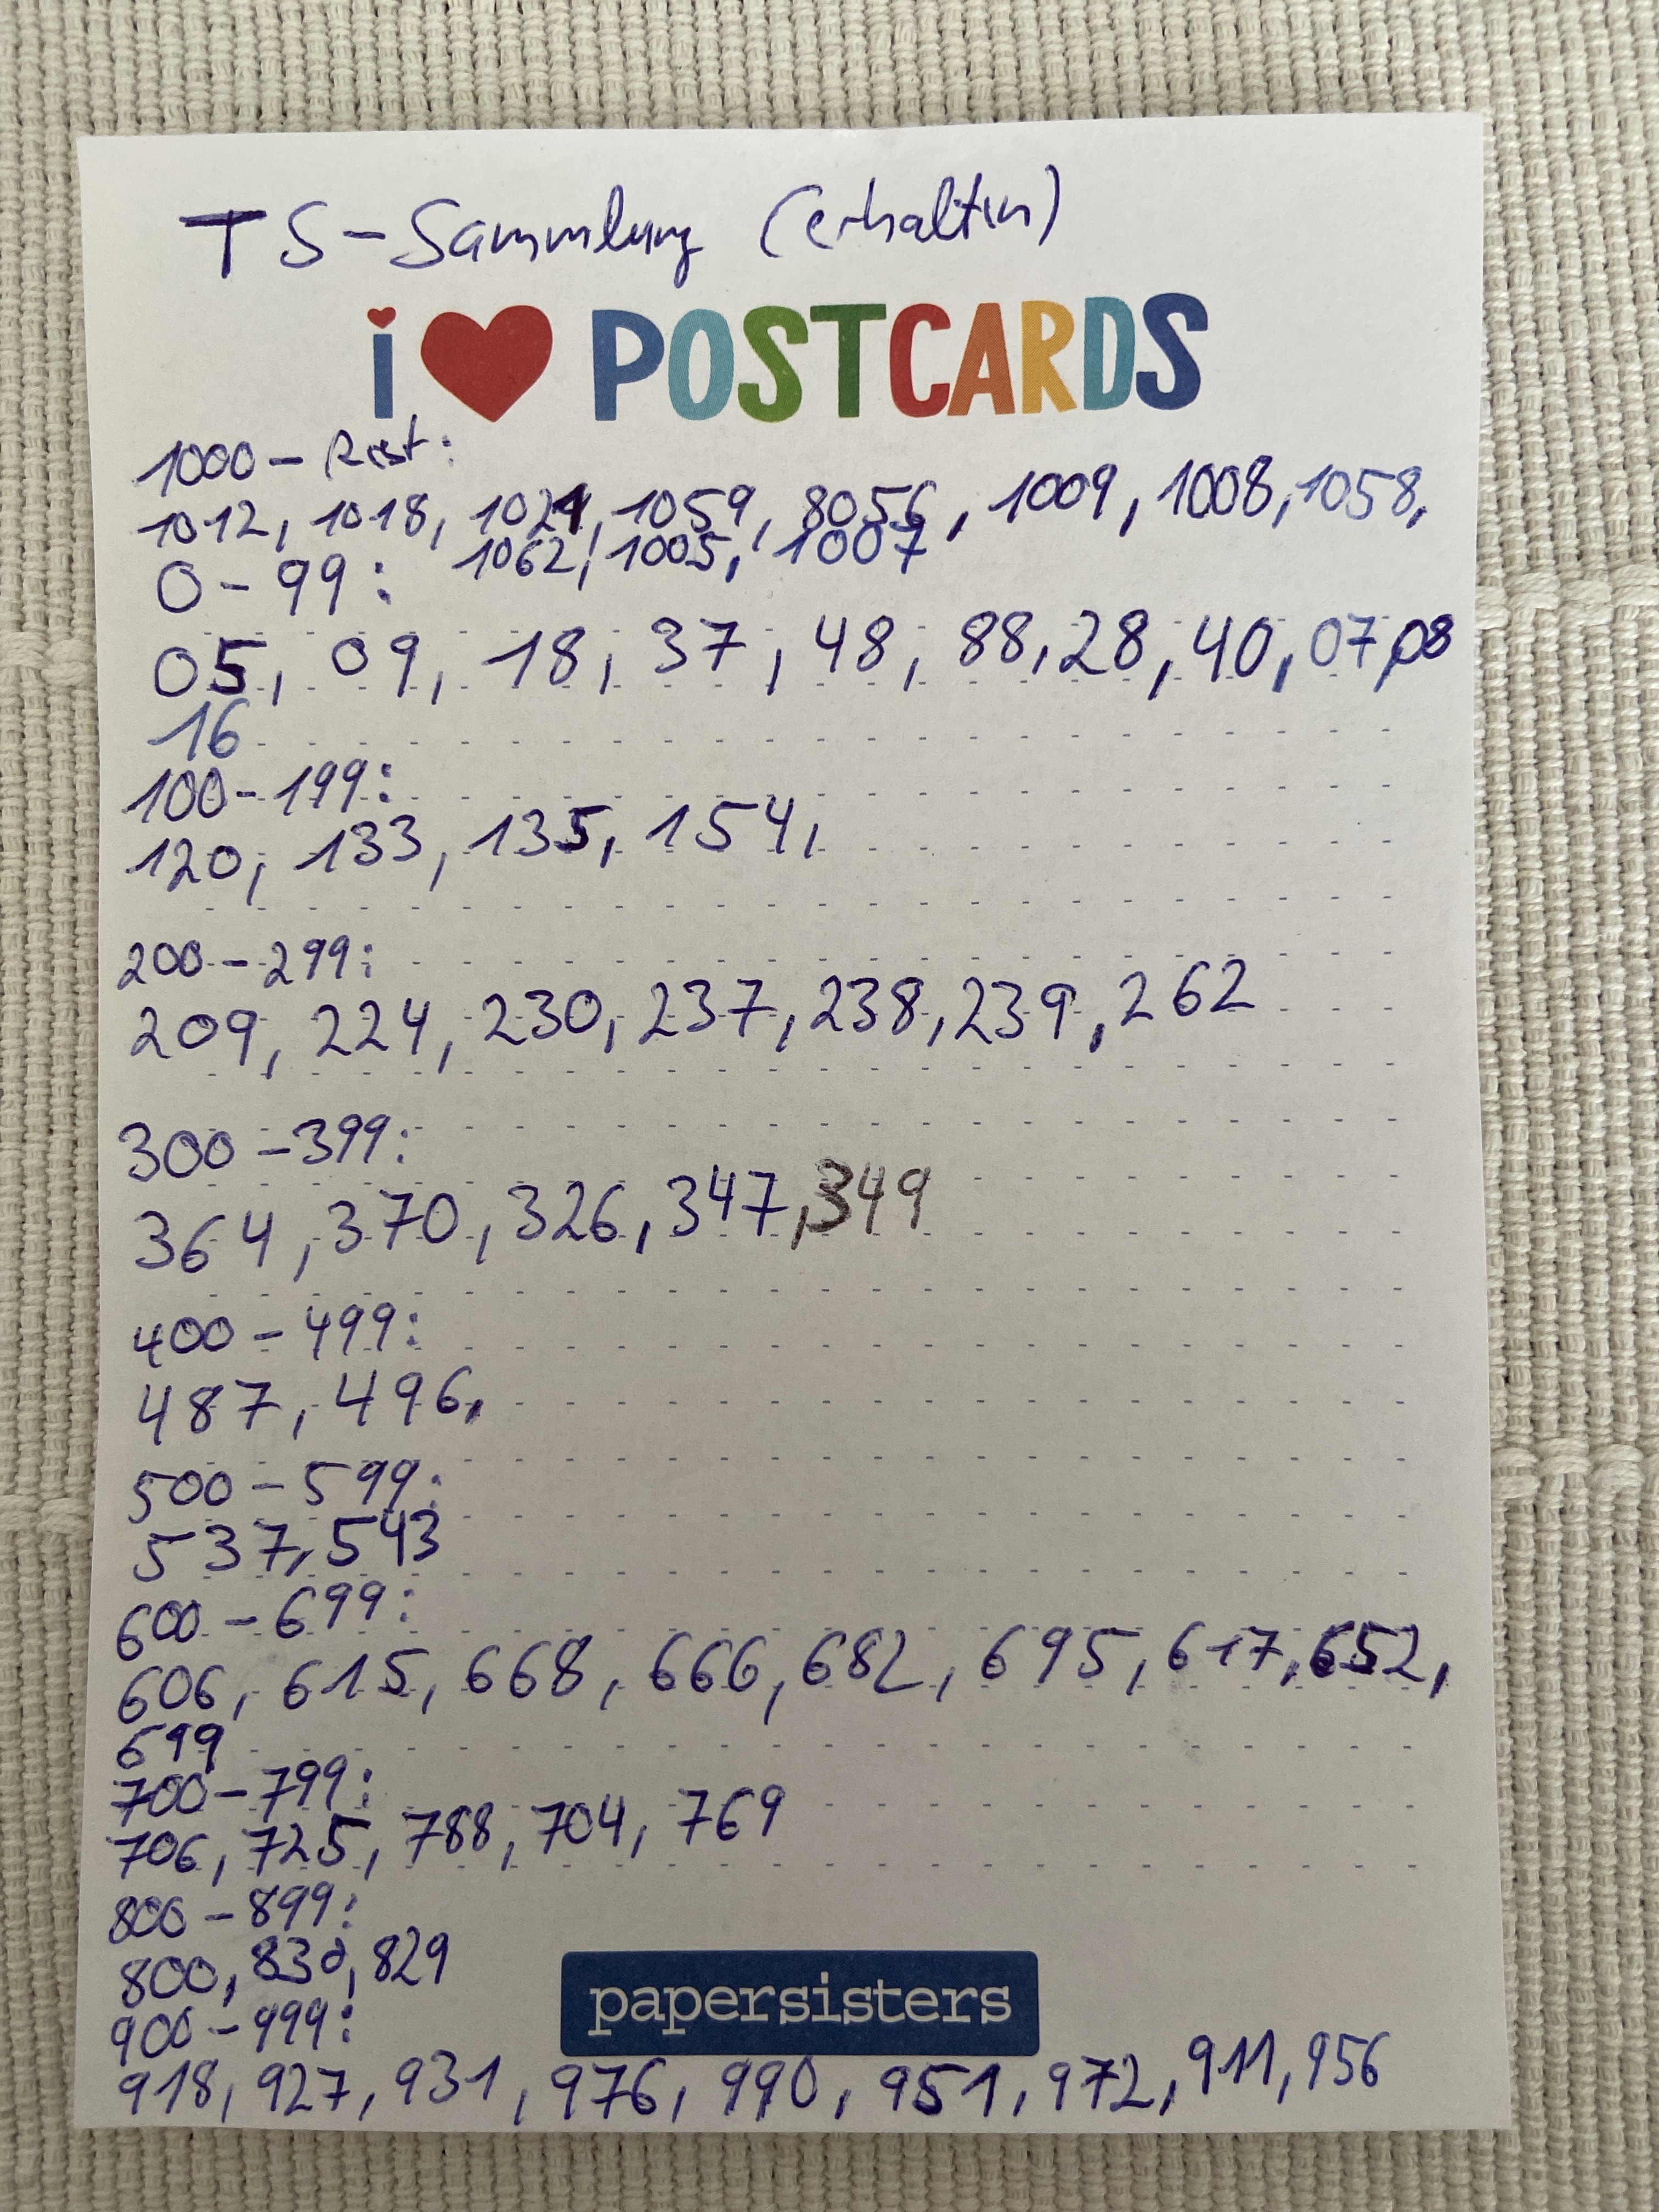 TS-Sammlung (erhalten)
i ♥ POSTCARDS
1000 - Rest:
1012, 1018, 1021, 1059, 8056, 1009, 1008, 1058,
1062, 1005, 1007
0-99:
05, 09, 18, 37, 48, 88, 28, 40, 07, 08
16
100-199:
120, 133, 135, 154,
200-299:
209, 224, 230, 237, 238, 239, 262
300-399:
364, 370, 326, 347, 349
400-499:
487, 496,
500-599:
537, 543
600-699:
606, 615, 668, 666, 682, 695, 617, 652,
699
700-799:
706, 725, 788, 704, 769
800-899:
800, 830, 829
900-999:
papersisters
918, 927, 931, 976, 990, 951, 972, 911, 956